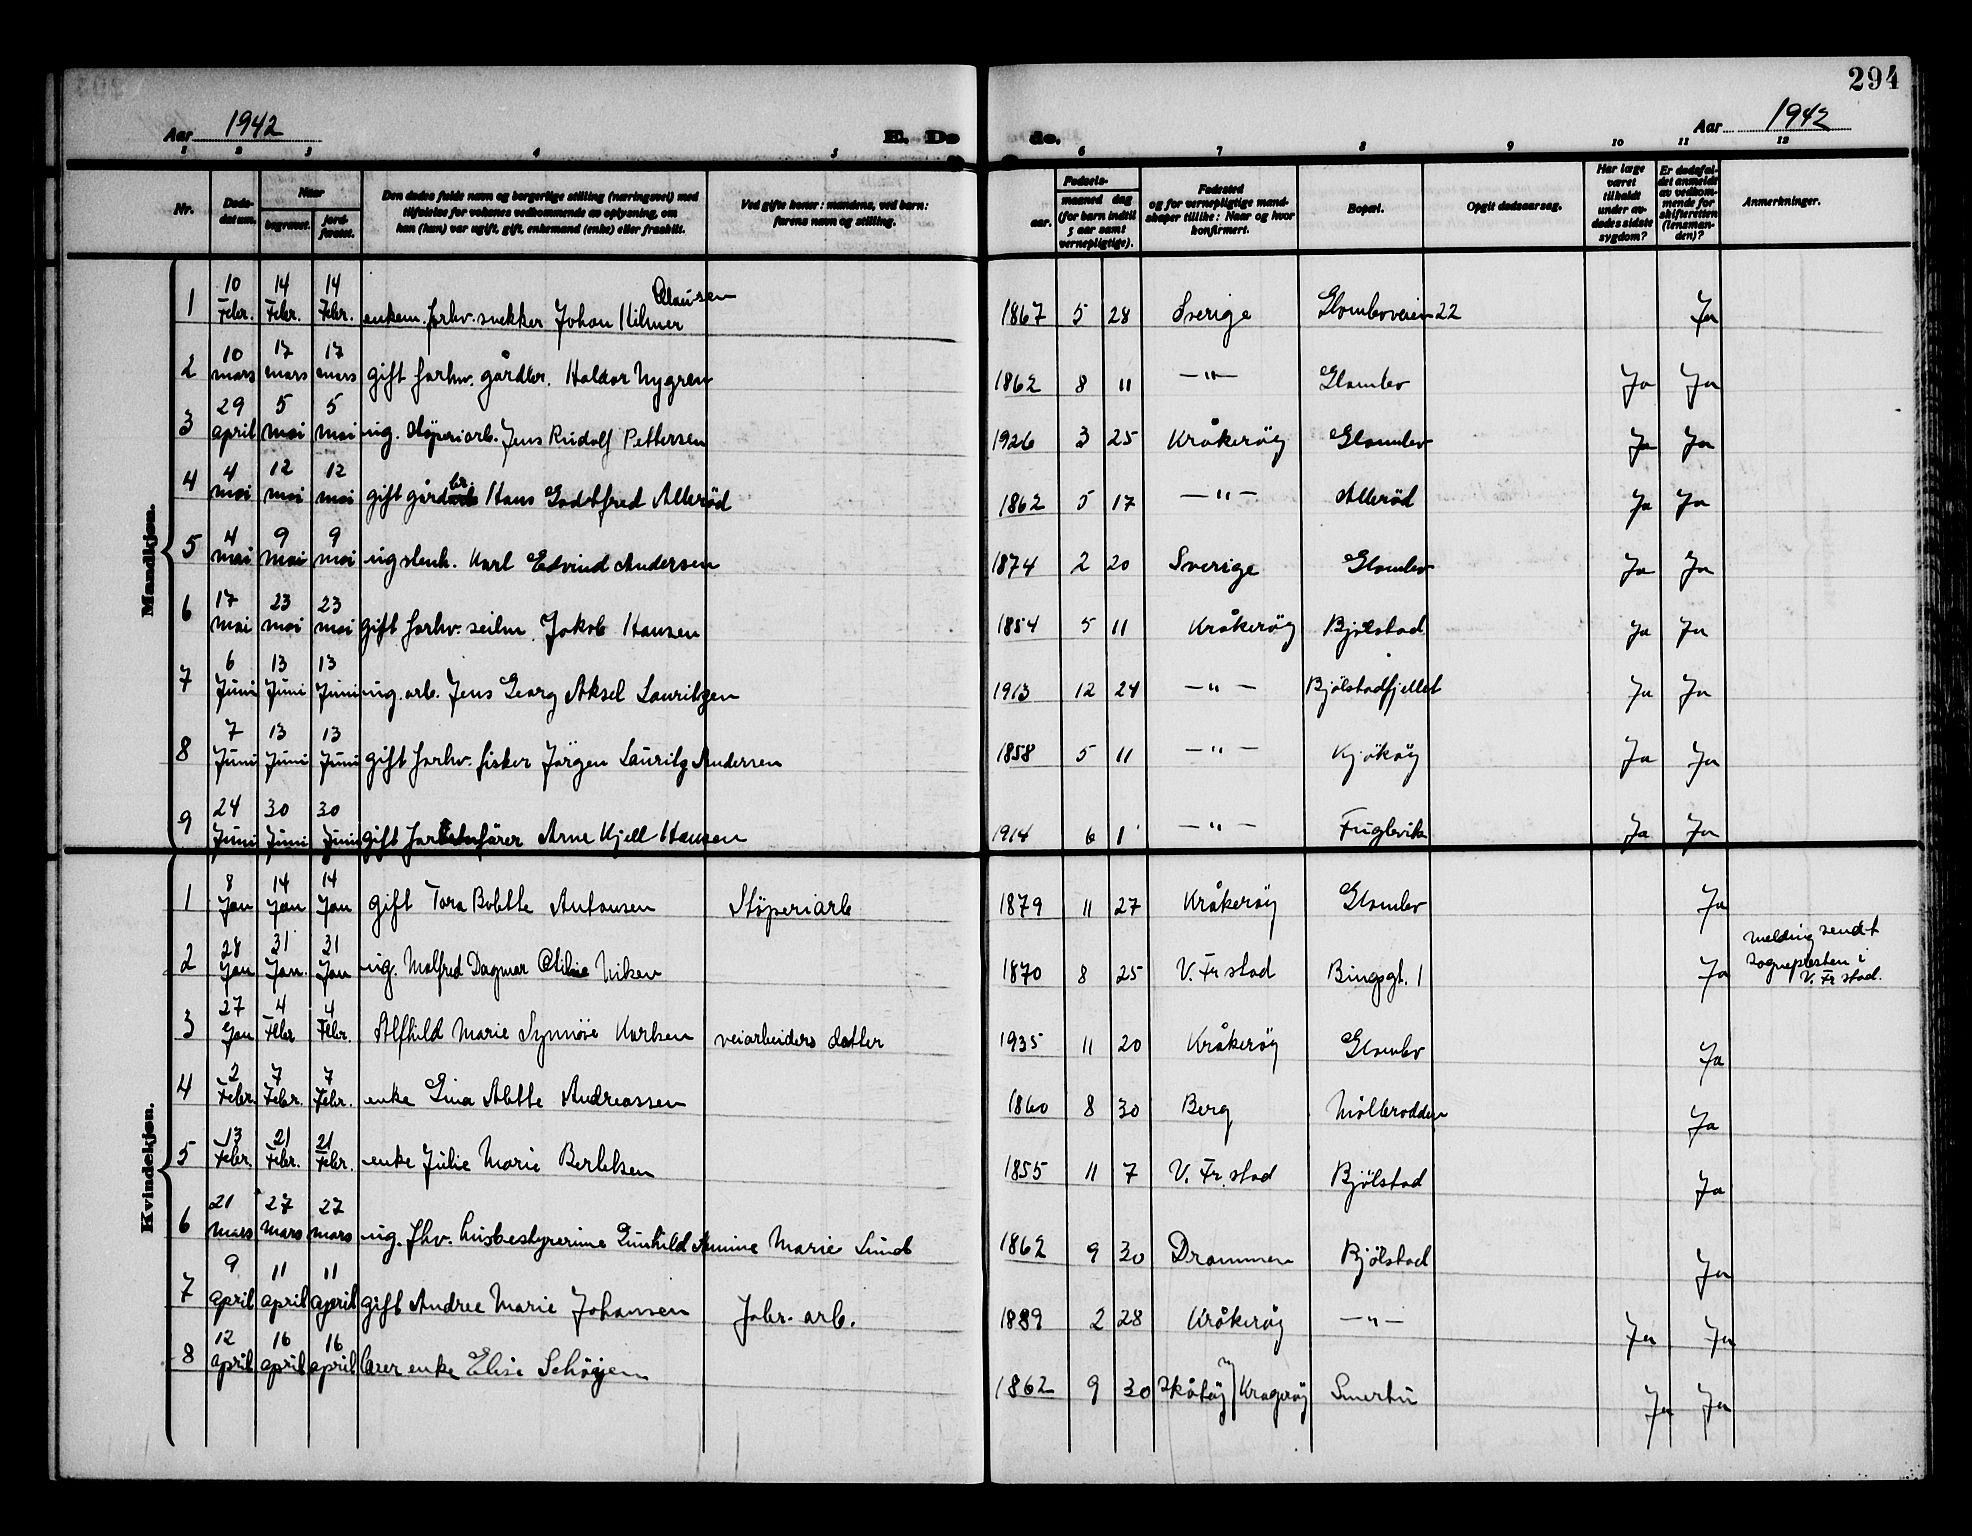 294
Aar 1942 E. Dø
de. Aar 1942
1 2 3 4 5 6 7 8 9 10 11 12
Nr.
Døds-
datum.
Naar
begravet.
jord-
fæstet.
Den dødes fulde navn og borgerlige stilling (næringsvei) med
tilføielse for voksnes vedkommende av oplysning, om
han (hun) var ugift, gift, enkemand (enke) eller fraskilt.
Ved gifte koner: mandens, ved barn:
farens navn og stilling.
Fødsels-
aar.
maaned dag
(for barn indtil
5 aar samt
vernepligtige).
Fødested
og for vernepligtige mand-
skaper tillike: Naar og hvor
konfirmert.
Bopæl.
Opgit dødsaarsag.
Har læge
været
tilkaldt
under av-
dødes sidste
sygdom?
Er dødsfal-
det anmeldt
av vedkom-
mende for
skifteretten
(lensman-
den)?
Anmerkninger.
Mandkjøn.
1 10 Febr. 14 Febr. 14 Febr. enkem. forhv. snekker Johan Hilmer Clausen 1867 5 28 Sverige Glomboveien 22 Ja
2 10 mars 17 mars 17 mars gift forhv. gårdbr. Haldor Nygren 1862 8 11 — " — Glombo Ja Ja
3 29 april 5 mai 5 mai ug. støperiarb. Jens Rudolf Pettersen 1926 3 25 Kråkerøy Glombo Ja Ja
4 4 mai 12 mai 12 mai gift gårdbr. Hans Godtfred Allerød 1862 5 17 — " — Allerød Ja Ja
5 4 mai 9 mai 9 mai ug stenh. Karl Edvind Andersen 1874 2 20 Sverige Glombo Ja Ja
6 17 mai 23 mai 23 mai gift forhv. seilm. Jakob Hansen 1854 5 11 Kråkerøy Bjølstad Ja Ja
7 6 Juni 13 Juni 13 Juni ug. arb. Jens Georg Aksel Lauritzen 1913 12 24 — " — Bjølstadfjellet Ja Ja
8 7 Juni 13 Juni 13 Juni gift forhv. fisker Jørgen Lauritz Andersen 1858 5 11 — " — Kjøkøy Ja Ja
9 24 Juni 30 Juni 30 Juni gift Arne Kjell Hansen 1914 6 1 — " — Fuglevik Ja Ja
Kvindekjøn.
1 8 Jan 14 Jan 14 Jan gift Tora Bolette Antonsen Støperiarb 1879 11 27 Kråkerøy Glombo Ja
2 28 Jan 31 Jan. 31 Jan ug. Malfred Dagmar Nilsen 1870 8 25 V. Fr stad Bingsgt. 1 Ja
melding sendt
sognepresten i
V. Fr stad.
3 27 Jan 4 Febr 4 Febr. Alfhild Marie Synnøve Karlsen veiarbeiders datter 1935 11 20 Kråkerøy Glombo Ja
4 2 Febr. 7 Febr. 7 Febr. enke Gina Alette Andreassen 1860 8 30 Berg Møllerodden Ja
5 13 Febr. 21 Febr. 21 Febr. enke Julie Marie Bertelsen 1855 11 7 V. Fr. stad Bjølstad Ja
6 21 mars 27 mars 27 mars ug. fhv. husbestyrerinne Gunhild Amine Marie Lund 1862 9 30 Drammen Bjølstad Ja
7 9 april 11 april 11 april gift Andree Marie Johansen Fabr. arb. 1889 2 28 Kråkerøy — " — Ja Ja
8 12 april 16 april 16 april lærer enke Elise Schøyen 1862 9 30 Skåtøy Kragerøy Smertu Ja Ja